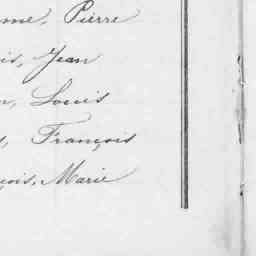 me, Pierre
is, Jean
n, Louis
s, François
çois, Marie